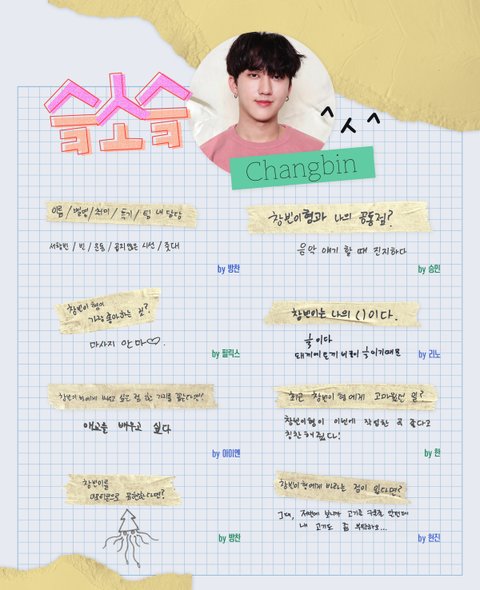 슼소슼
^ㅅ^
Changbin
이름 / 별명 / 취미 / 특기 / 팀 내 담당
서창빈 / 빈 / 운동 / / 춎대
by 방찬
창빈이형과 나의 공통점?
음악 얘기 할 때 진지하다
by 승민
창빈이 형이
가장 좋아하는 것?
마사지 안마♡.
by 필릭스
창빈이는 나의 ( )이다.
이다
by 리노
창빈이 형에게 배우고 싶은 점 한 가지를 꼽는다면?
애교를 배우고 싶다
by 아이엔
최근 창빈이 형에게 고마웠던 일?
창빈이형이 이번에 작업한 곡 좋다고
칭찬해줬다!
by 한
창빈이를
그림으로 표현한다면?
by 방찬
창빈이형에게 바라는 점이 있다면?
그대, 저번에 보니까 고기를 구웠을
내 고기도 좀 부탁하오...
by 현진